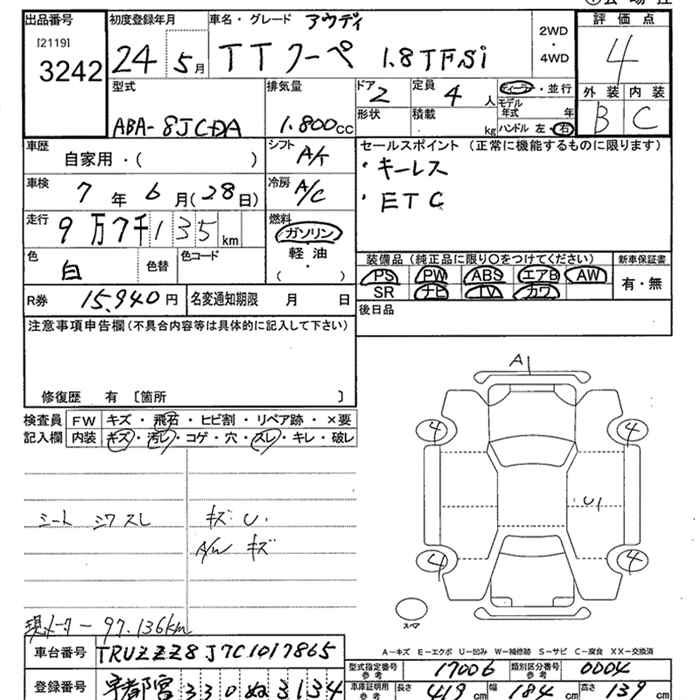 出品番号 初度登録年月 車名・グレード アウディ 評価点
[2119] 3242 24 5月 TTクーペ 1.8TFSi 2WD・4WD 4
型式 排気量 ドア 2 定員 4人 ディーラー・並行 外装 内装
ABA-8JCDA 1.800cc 形状 積載 kg モデル年式 年 ハンドル 左・右 B C
車歴 自家用・( ) シフト A/T セールスポイント(正常に機能するものに限ります)
・キーレス
車検 7年 6月(28日) 冷房 A/C ・ETC
走行 9万7千135km 燃料 ガソリン
軽油
・( )
色 白 色替 色コード 装備品(純正品に限り○をつけてください) 新車保証書
PS PW ABS エアB AW 有・無
SR ナビ TV カワ
R券 15,940円 名変通知期限 月 日 後日品
注意事項申告欄(不具合内容等は具体的に記入して下さい)
修復歴 有〔箇所 〕
検査員 FW キズ・飛石・ヒビ割・リペア跡・×要
記入欄 内装 キズ・汚レ・コゲ・穴・スレ・キレ・破レ
A1
4 4
U1
4 4
シート シワスレ キズ.U.
A/W キズ
現メーター 97.136km
スペア
A-キズ E-エクボ U-凹み W-補修跡 S-サビ C-腐食 XX-交換済
車台番号 TRUZZZ8J7C1017865
型式指定番号 参考 17006 類別区分番号 参考 0004
登録番号 宇都宮 330ぬ3134 車庫証明用 参考 長さ 419cm 幅 184cm 高さ 139cm